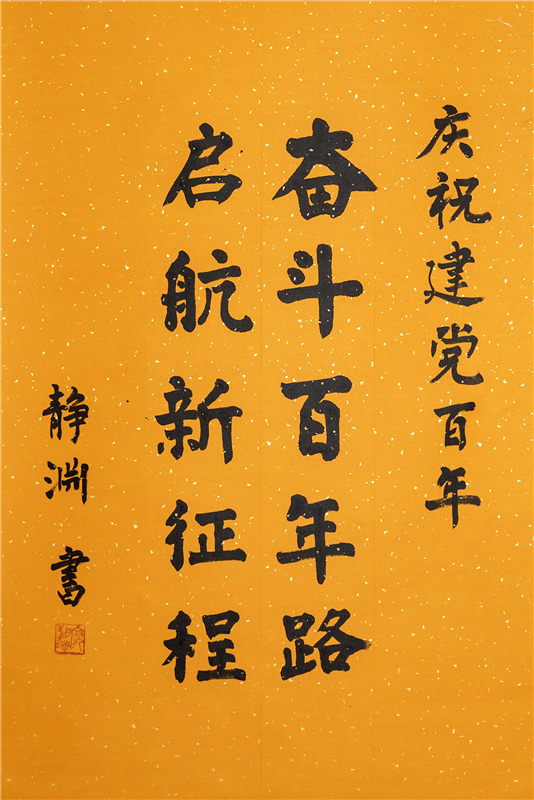 庆祝建党百年
奋斗百年路
启航新征程
静渊 書